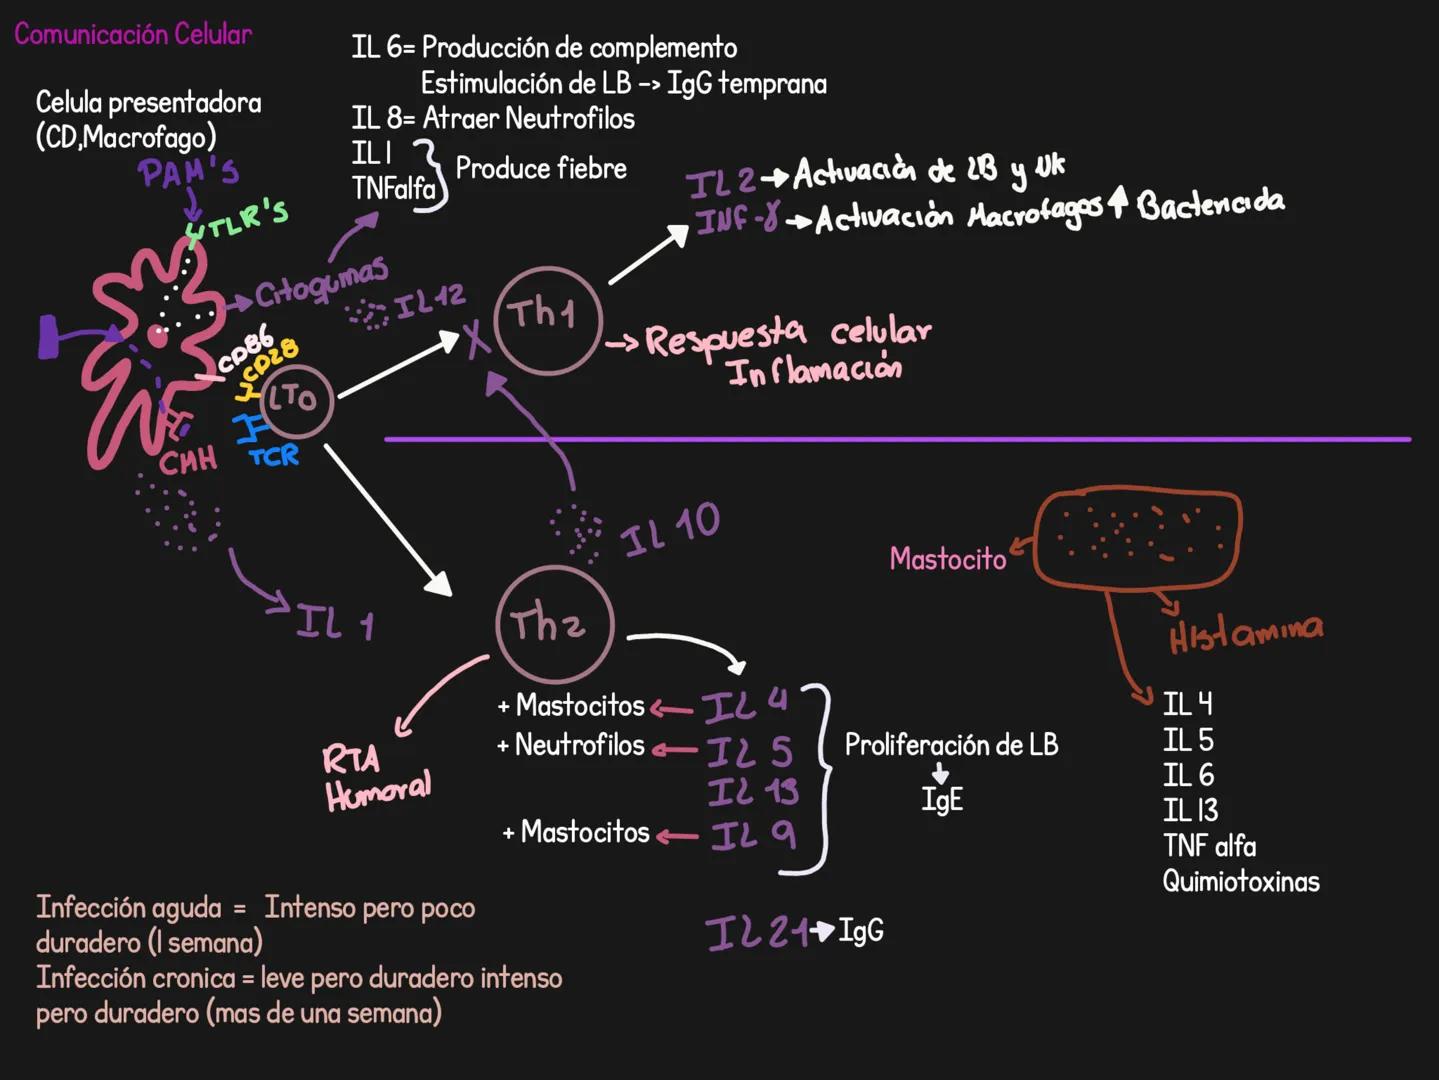 Comunicación Celular
IL 6= Producción de complemento
Estimulación de LB -> IgG temprana
IL 8= Atraer Neutrofilos
IL 1
TNFalfa
Produce fiebre
Celula presentadora
(CD,Macrofago)
PAM'S
TLR'S
Citoquinas
IL12
CD86
CD28
LTo
TCR
CMH
X
Th1
IL 2 → Activación de LB y Nk
INF-γ → Activación Macrofagos ↑ Bactericida
→ Respuesta celular
Inflamación
IL 1
IL 10
Th2
RTA
Humoral
+ Mastocitos ← IL 4
+ Neutrofilos ← IL 5
IL 13
+ Mastocitos ← IL 9
Proliferación de LB
IgE
IL 21 → IgG
Mastocito
Histamina
IL 4
IL 5
IL 6
IL 13
TNF alfa
Quimiotoxinas
Infección aguda = Intenso pero poco
duradero (1 semana)
Infección cronica = leve pero duradero intenso
pero duradero (mas de una semana)